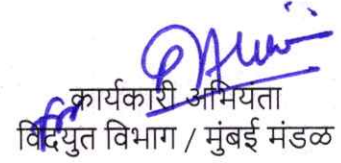 कार्यकारी अभियंता
विद्युत विभाग / मुंबई मंडळ